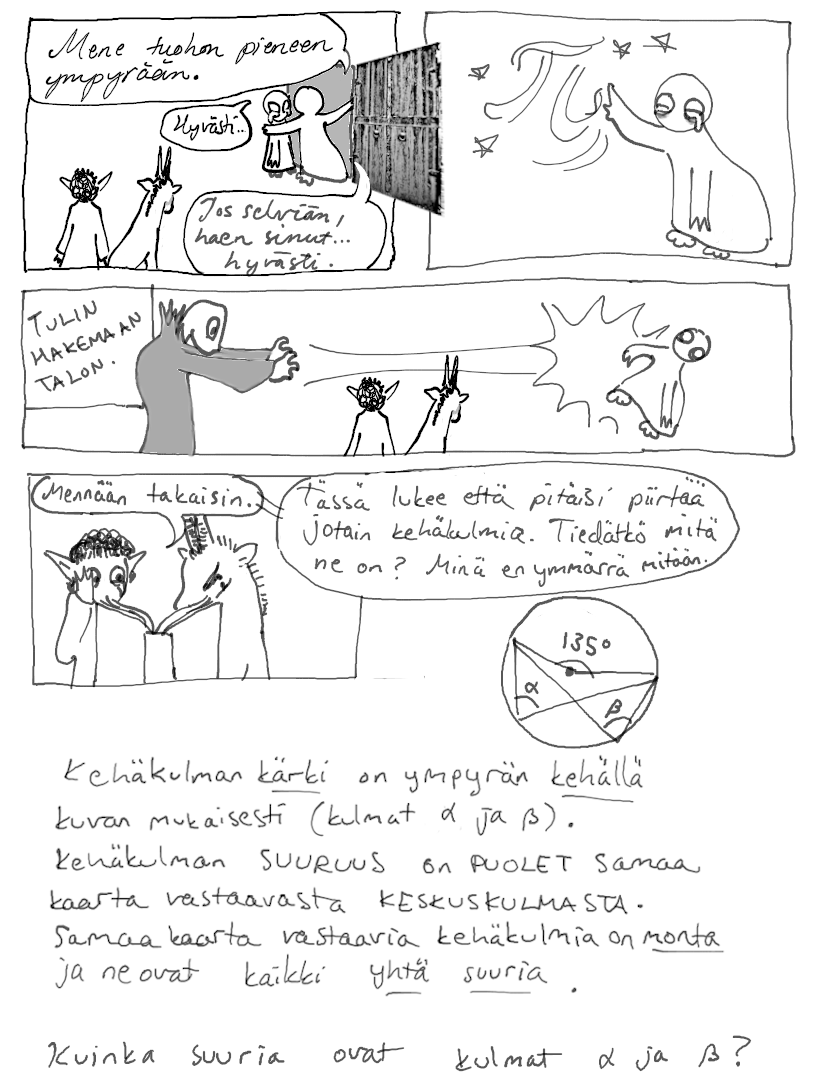 Mene tuohon pieneen
ympyrään.
Hyvästi...
Jos selviän,
haen sinut...
hyvästi.
π
TULIN
HAKEMAAN
TALON.
Mennään takaisin.
Tässä lukee että pitäisi piirtää
jotain kehäkulmia. Tiedätkö mitä
ne on? Minä en ymmärrä mitään.
135°
α
β
Kehäkulman kärki on ympyrän kehällä
kuvan mukaisesti (kulmat α ja β).
Kehäkulman SUURUUS on PUOLET samaa
kaarta vastaavasta KESKUSKULMASTA.
Samaa kaarta vastaavia kehäkulmia on monta
ja ne ovat kaikki yhtä suuria.
Kuinka suuria ovat kulmat α ja β?